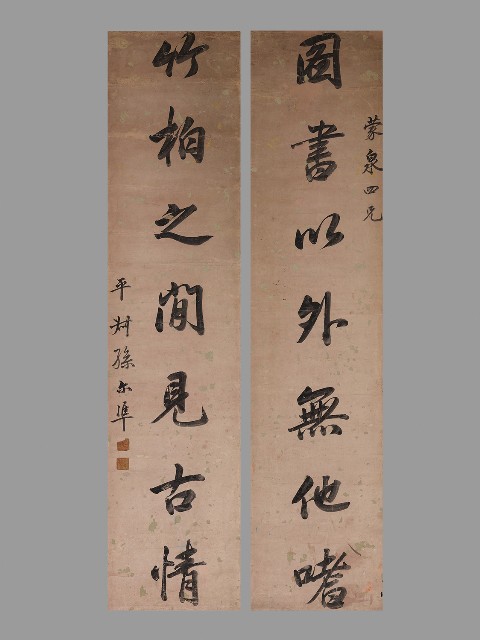 圖書以外無他嗜
蒙泉四兄
竹柏之間見古情
平叔孫尔準